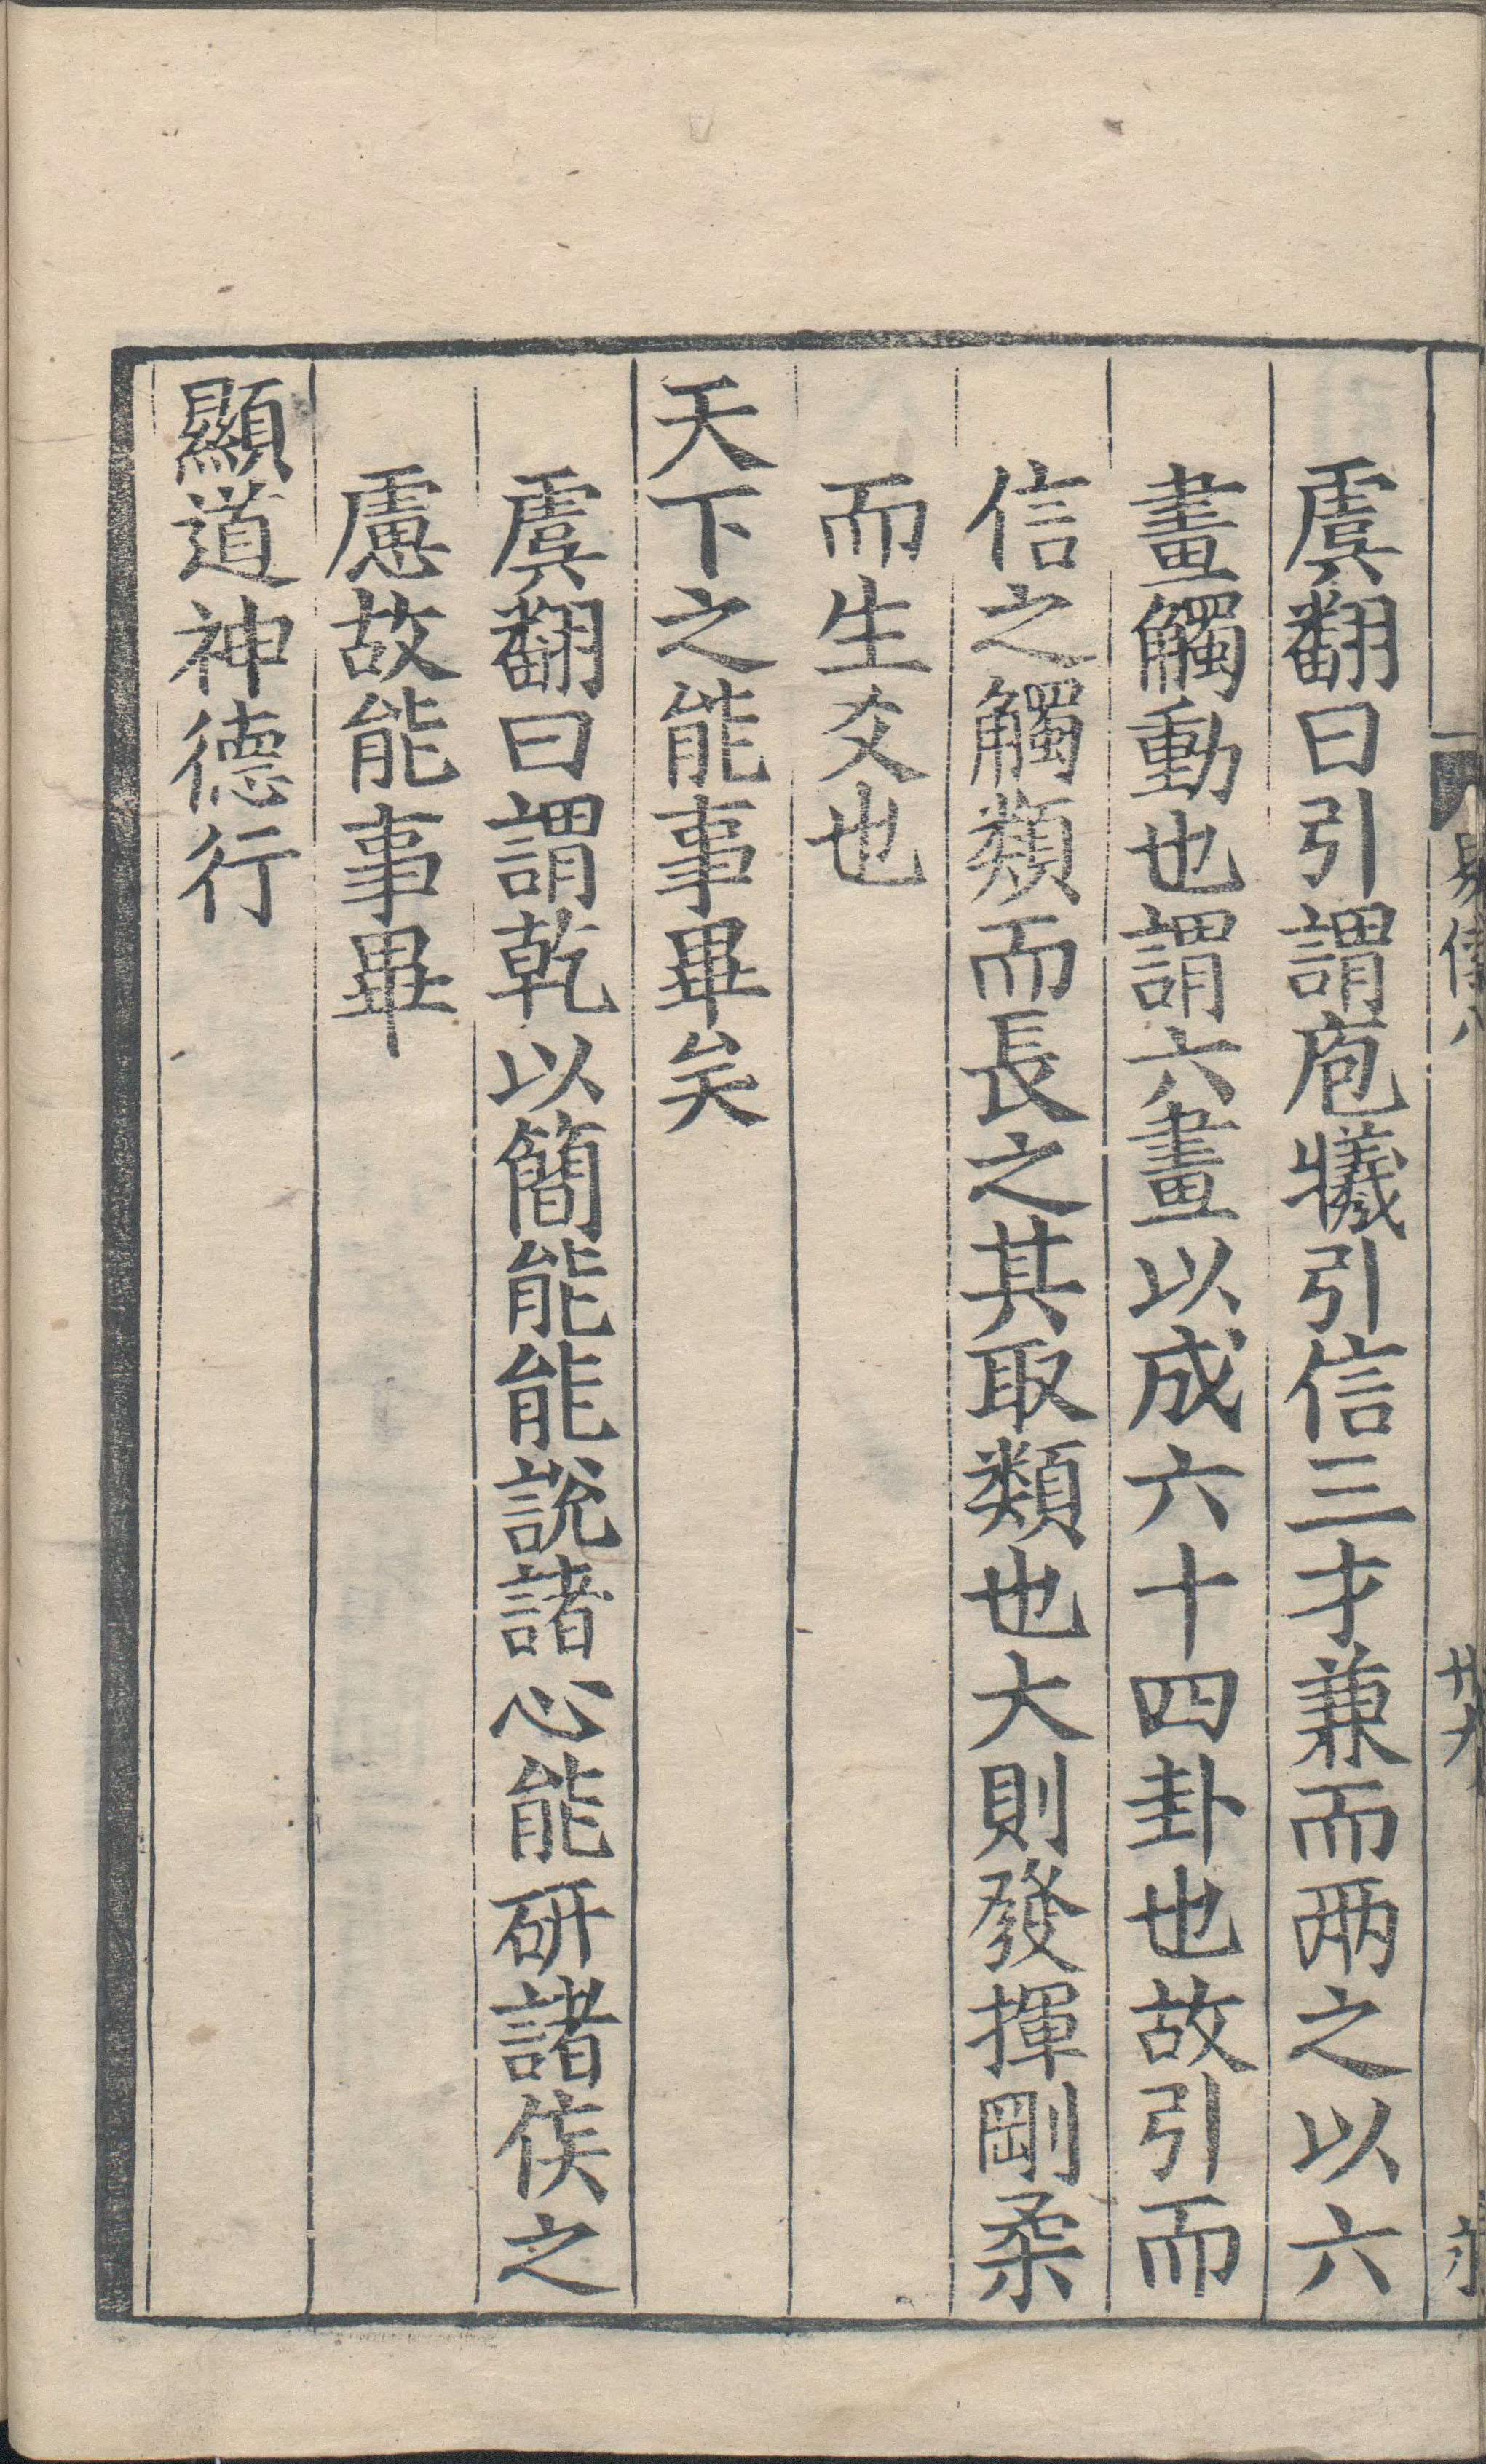 虞翻曰引謂庖犧引信三才兼而兩之以六
畫觸動也謂六畫以成六十四卦也故引而
信之觸類而長之其取類也大則發揮剛柔
而生爻也
天下之能事畢矣
虞翻曰謂乾以簡能能說諸心能研諸侯之
慮故能事畢
顯道神德行